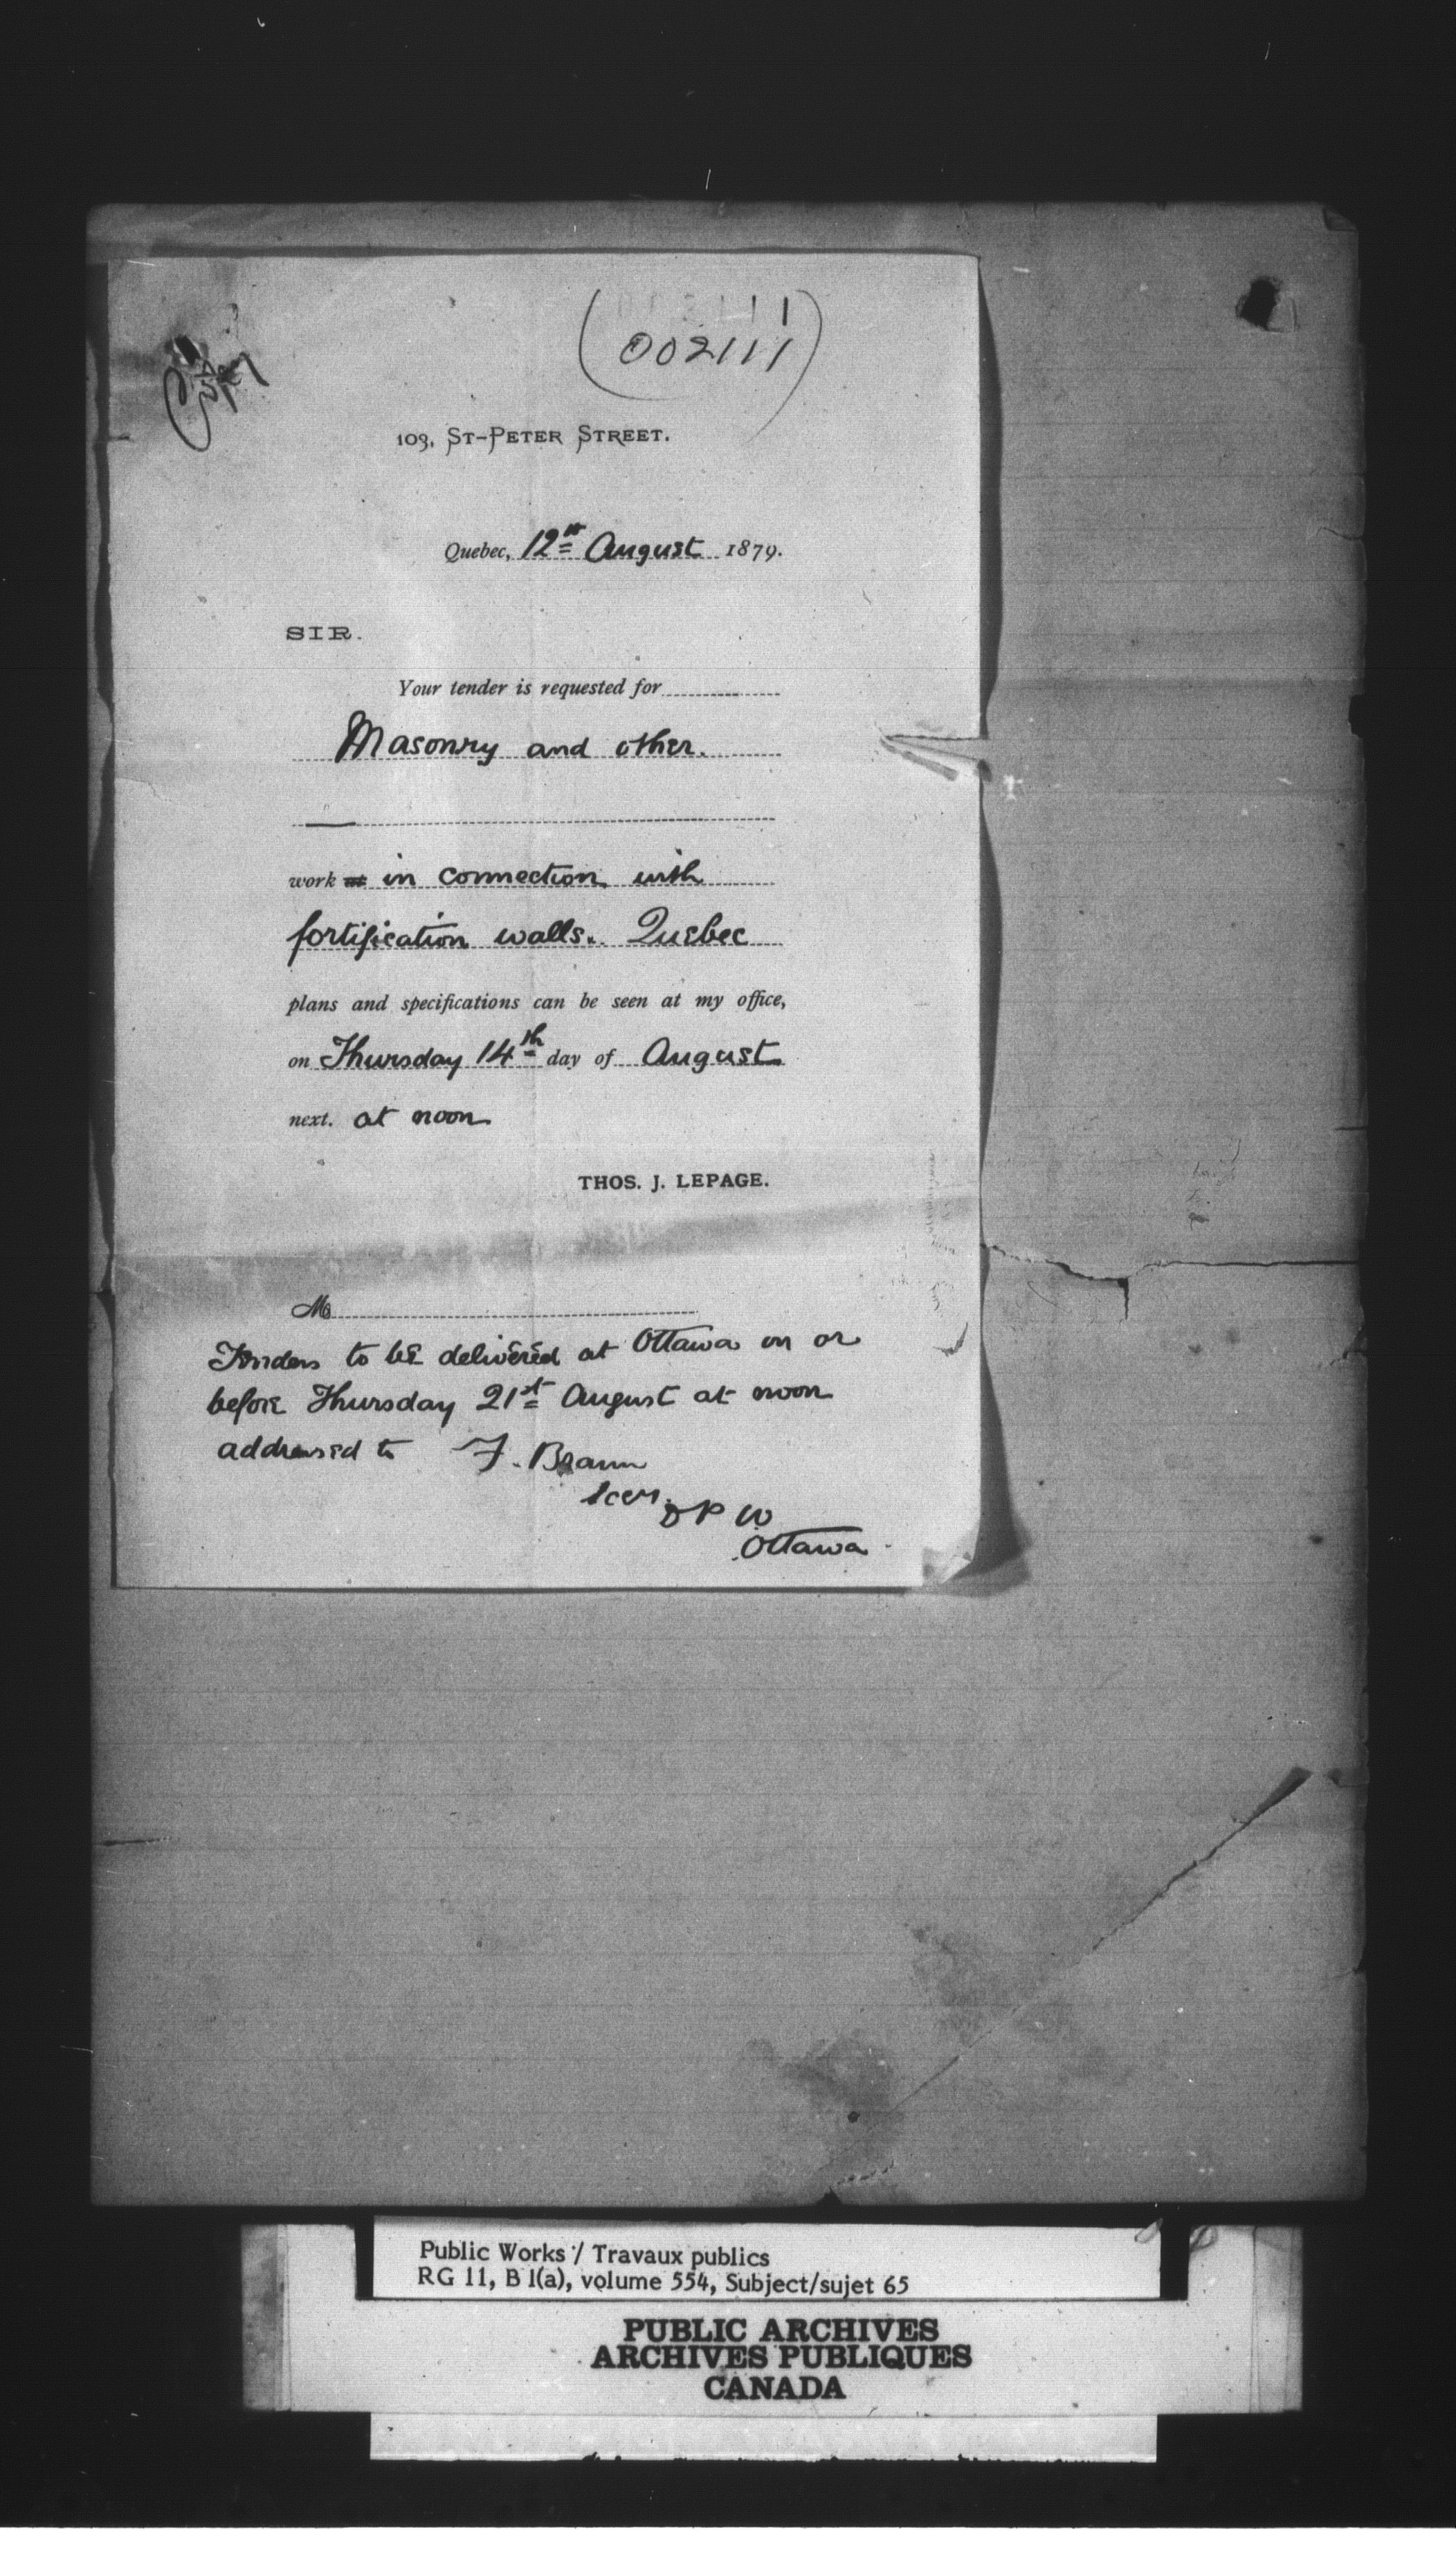 Copy
(002111)
103, ST-PETER STREET.
Quebec, 12th August 1879.
SIR.
Your tender is requested for
Masonry and other.
work at in connection with
fortification walls. Quebec
plans and specifications can be seen at my office,
on Thursday 14th day of August
next. at noon
THOS. J. LEPAGE.
M
Tenders to be delivered at Ottawa on or
before Thursday 21st August at noon
addressed to F. Braun
Secy.
D P W
Ottawa
Public Works / Travaux publics
RG 11, B 1(a), volume 554, Subject/sujet 65
PUBLIC ARCHIVES
ARCHIVES PUBLIQUES
CANADA